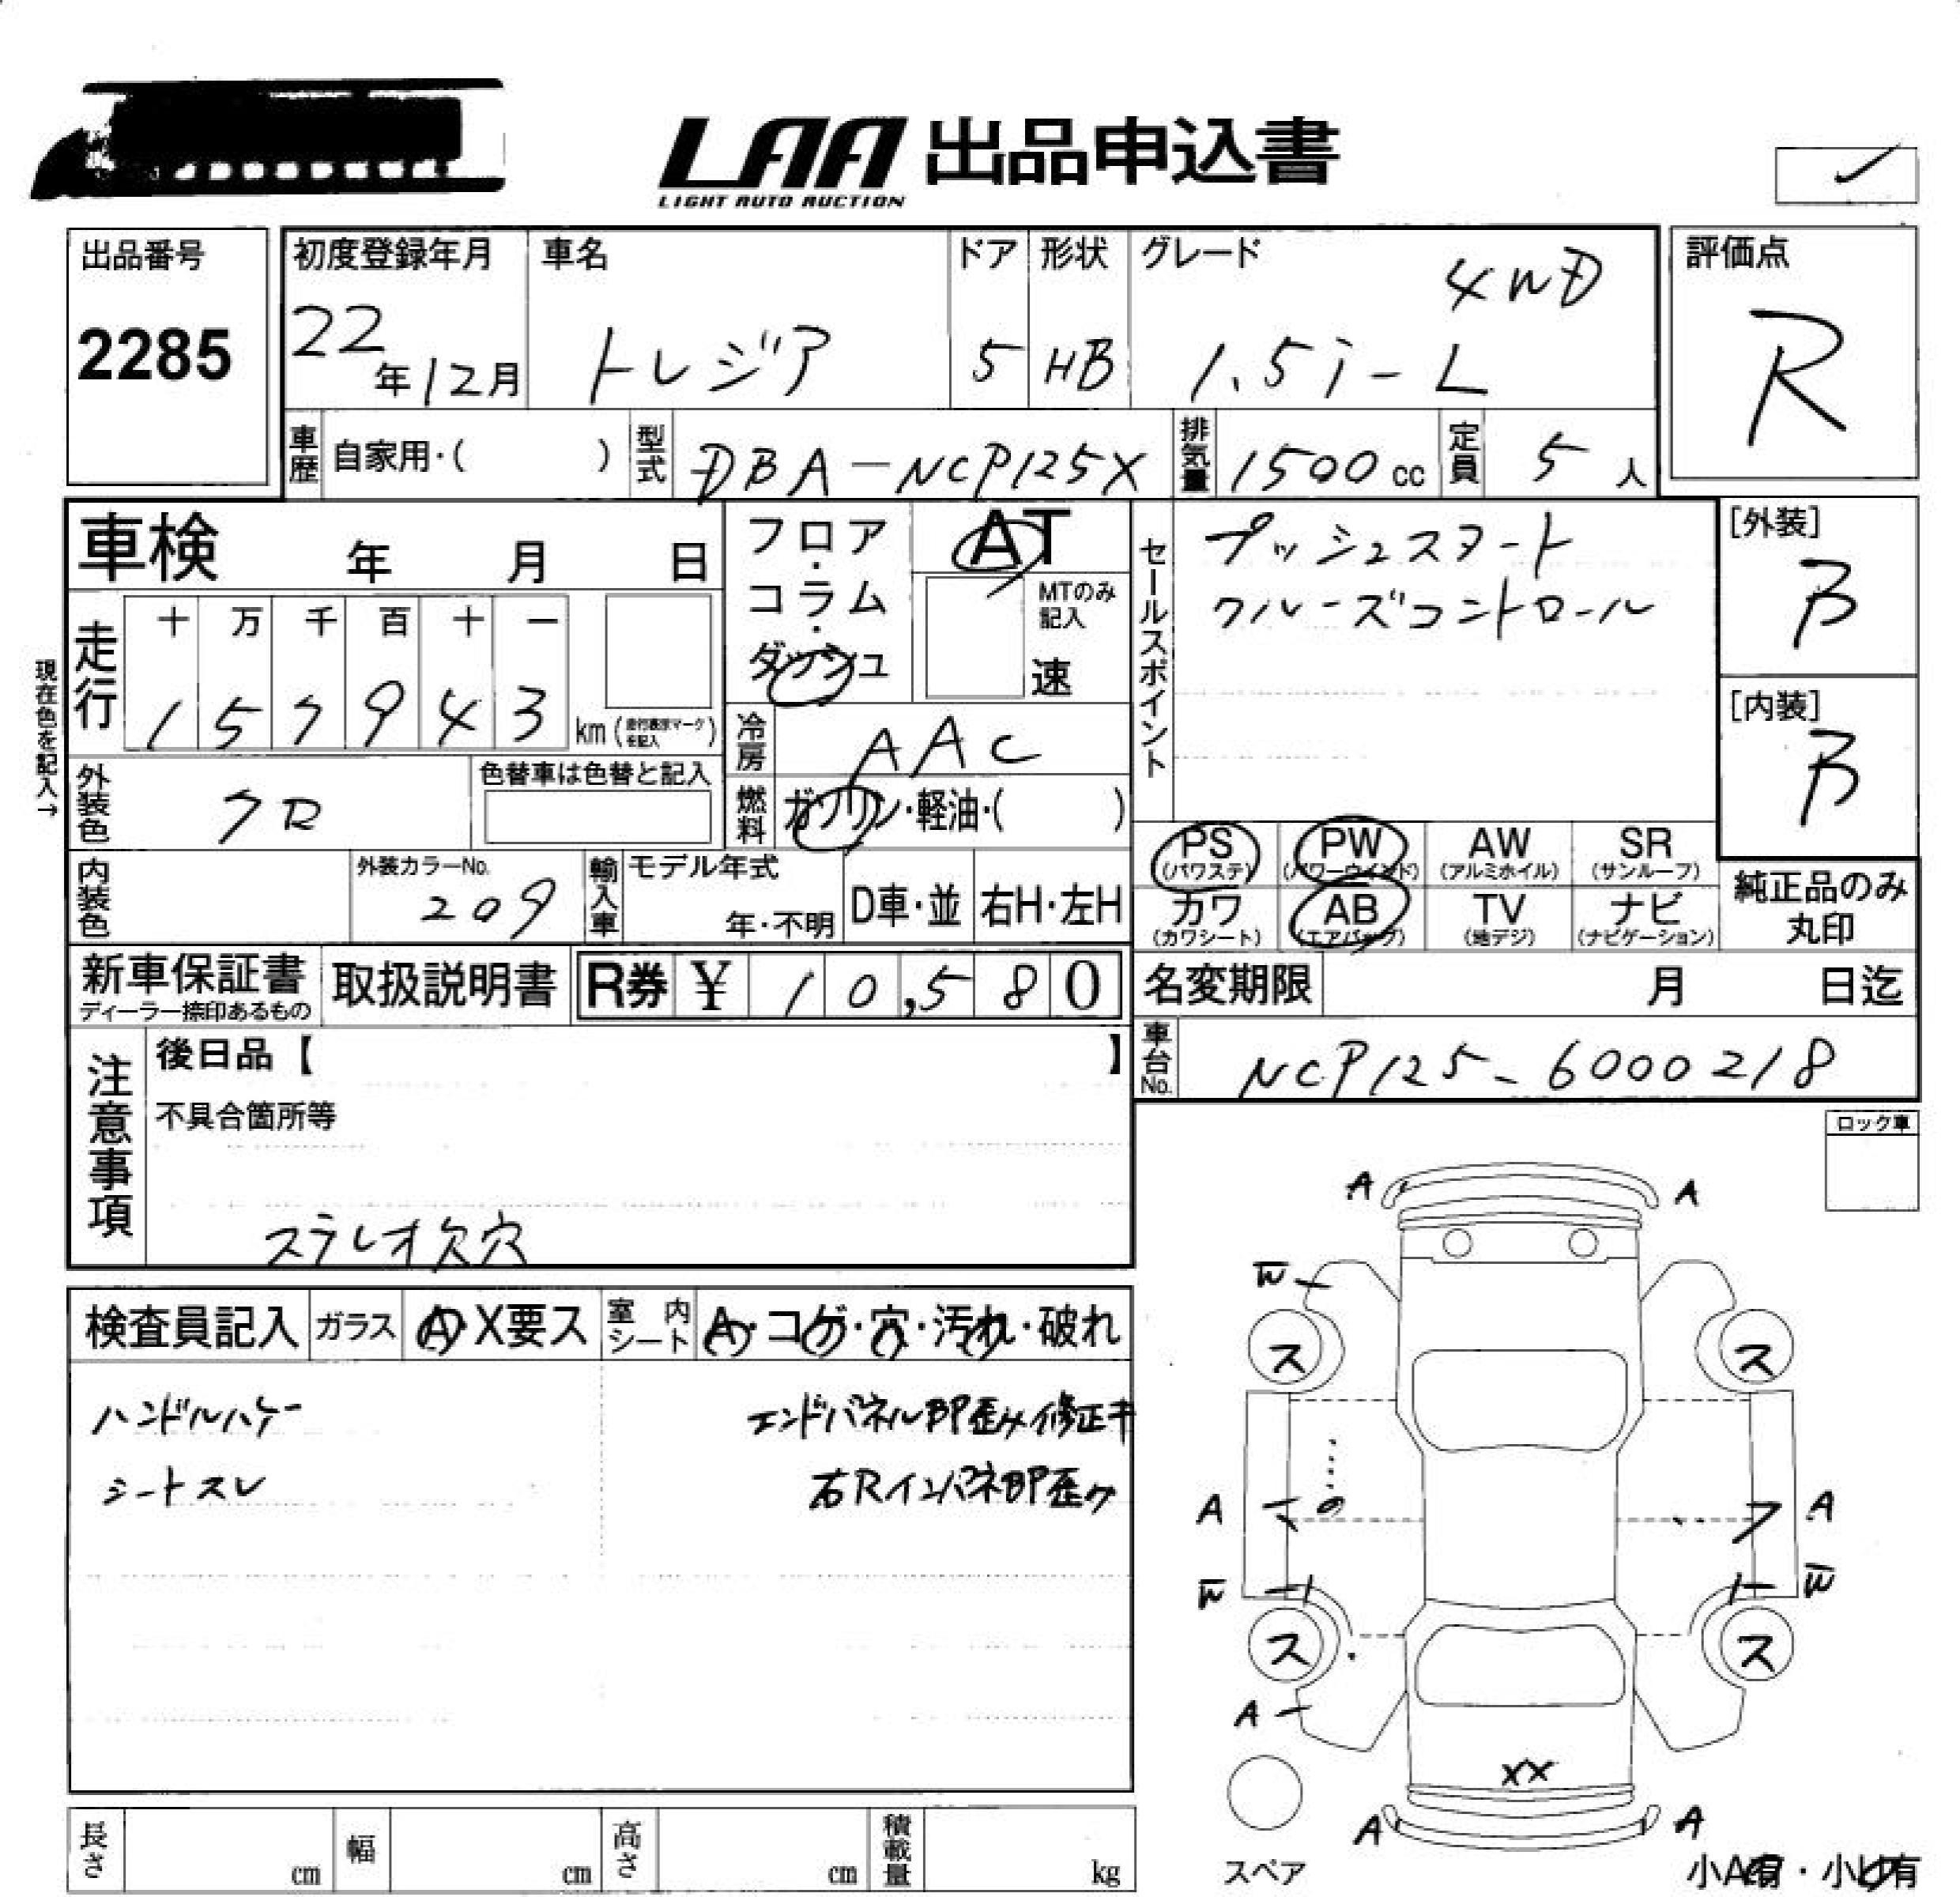 LAA 出品申込書
LIGHT AUTO AUCTION
出品番号
2285
初度登録年月
22年12月
車名
トレジア
ドア
5
形状
HB
グレード
4WD
1.5i-L
評価点
R
車歴
自家用・( )
型式
DBA-NCP125X
排気量
1500cc
定員
5人
車検 年 月 日
フロア・コラム・ダッシュ
AT
MTのみ記入
速
セールスポイント
プッシュスタート
クルーズコントロール
[外装]
B
[内装]
B
現在色を記入→
走行
十 万 千 百 十 一
1 5 7 9 4 3 km (走行表示マークを記入)
冷房
AAC
外装色
クロ
色替車は色替と記入
燃料
ガソリン・軽油・( )
内装色
外装カラーNo.
209
輸入車
モデル年式
年・不明
D車・並
右H・左H
PS (パワステ)
PW (パワーウインド)
AW (アルミホイル)
SR (サンルーフ)
カワ (カワシート)
AB (エアバッグ)
TV (地デジ)
ナビ (ナビゲーション)
純正品のみ丸印
新車保証書
ディーラー捺印あるもの
取扱説明書
R券 ¥ 10,580
名変期限 月 日迄
車台No.
NCP125-6000218
注意事項
後日品【 】
不具合箇所等
ステレオ欠穴
ロック車
検査員記入
ガラス
A・X要ス
室内シート
A・コゲ・穴・汚れ・破れ
ハンドルハゲー
シートスレ
エンドパネル部歪み修正キ
右Rインパネ部歪み
A A
W
ス ス
A A
W W
ス ス
A
XX
A A
スペア
小A有・小U有
長さ cm
幅 cm
高さ cm
積載量 kg